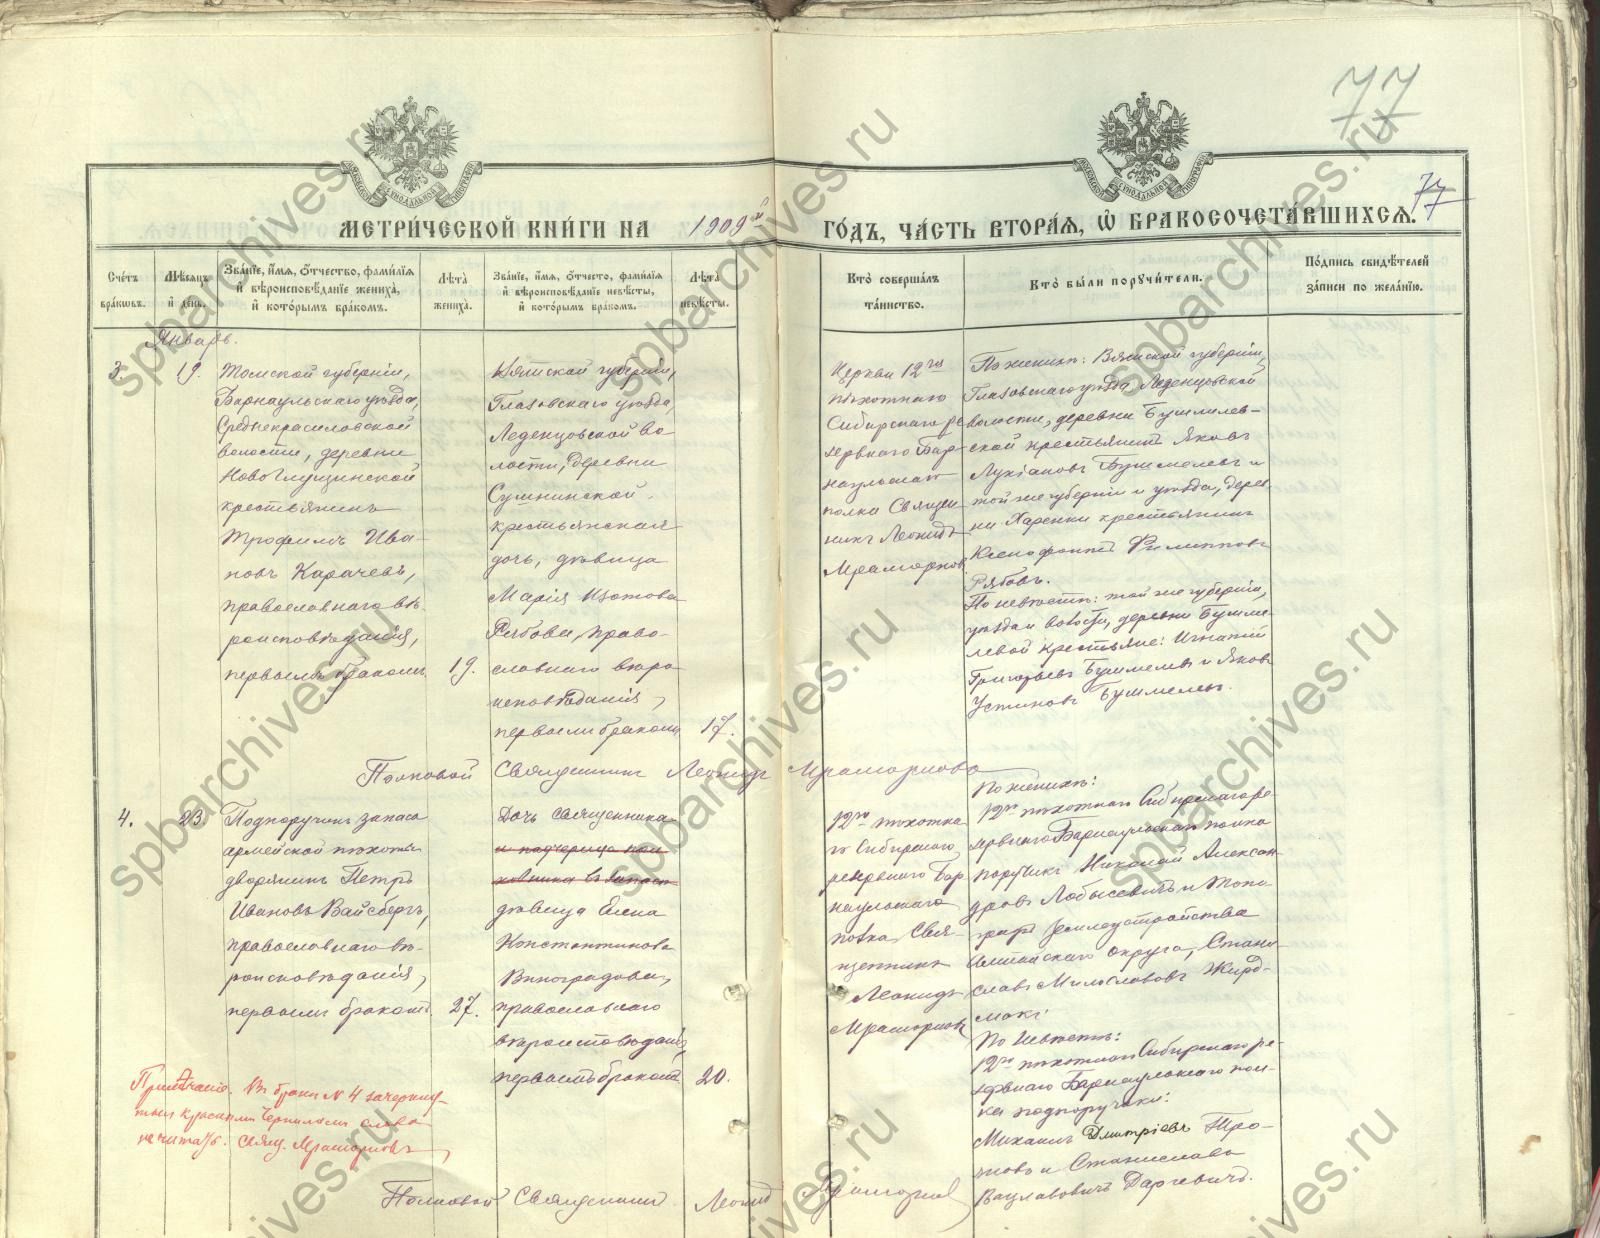 77
77
МОСКОВСКОЙ СѴНОДАЛЬНОЙ ТИПОГРАФІИ
МОСКОВСКОЙ СѴНОДАЛЬНОЙ ТИПОГРАФІИ
МЕТРИ́ЧЕСКОЙ КНИ́ГИ НА 1909й ГО́ДЪ, ЧА́СТЬ ВТОРА́Я, Ѡ҆ БРАКОСОЧЕТА́ВШИХСѦ.
Сче́тъ бра́кшвъ.
Мѣ́сяцъ и҆ де́нь.
Зва́нїе, и҆́мѧ, ѻ҆́тчество, фами́лїѧ
и҆ вѣроисповѣ́данїе жениха̀,
и҆ кото́рымъ бра́комъ.
Лѣ́та жениха̀.
Зва́нїе, и҆́мѧ, ѻ҆́тчесто, фами́лїѧ
и҆ вѣроисповѣ́данїе невѣ́сты,
и҆ кото́рымъ бра́комъ.
Лѣ́та невѣ́сты.
Кто̀ соверша́лъ
та́инство.
Кто̀ бы́ли поручи́тели.
По́дпись свидѣ́телей
за́писи по жела́нїю.
Январь.
3.
19.
Томской губерніи,
Барнаульскаго уѣзда,
Среднекрасиловской
волости, деревни
Ново Глушинской
крестьянинъ
Трофимъ Ива-
новъ Карачевъ,
православнаго вѣ-
роисповѣданія,
первымъ бракомъ.
19.
Вятской губерніи,
Глазовскаго уѣзда,
Леденцовской во-
лости, деревни
крестьянская
дочь, дѣвица
Марія Изотова
Рябова, право-
славнаго вѣро
исповѣданія,
первымъ бракомъ
17.
Церкви 12го
пѣхотнаго
Сибирскаго ре
зервнаго Бар-
наульскаго
полка Священ
никъ Леонидъ
Мраморновъ
По женихѣ: Вятской губерніи,
Глазовскаго уѣзда Леденцовской
волости, деревни Бушмелев-
ской крестьянинъ Яковъ
Лукіановъ Бушмелевъ и
той же губерніи и уѣзда, дерев
ни Харенки крестьянинъ
Ксенофонтъ Филипповъ
Рябовъ.
По невѣстѣ: той же губерніи,
уѣзда и волости, деревни Бушме-
левой крестьяне: Игнатій
Григорьевъ Бушмелевъ и Яковъ
Устиновъ Бушмелевъ.
Полковой Священникъ Леонидъ Мраморновъ
4.
23.
Подпоручикъ запаса
армейской пѣхоты
дворянинъ Петръ
Ивановъ Вайсбергъ,
православнаго вѣ-
роисповѣданія,
первымъ бракомъ.
27.
Дочь священника
и падчерица пол
ковника въ запасѣ
дѣвица Елена
Константинова
Виноградова,
православнаго
вѣроисповѣданія,
первымъ бракомъ
20.
12го пѣхотна
го Сибирскаго
резервнаго Бар
наульскаго
полка, Свя-
щенникъ
Леонидъ
Мраморновъ
По женихѣ:
12го пѣхотнаго Сибирскаго ре-
зервнаго Барнаульскаго полка
поручикъ Николай Алексан-
дровъ Лобысевичъ и Топо
графъ Землеустройства
Алтайскаго округа, Стани-
славъ Милославовъ
По невѣстѣ:
12го пѣхотнаго Сибирскаго ре-
зервнаго Барнаульскаго пол-
ка подпоручики:
Михаилъ Дмитріевъ Тро-
новъ и Станиславъ
Вацлавовичъ Даргевичъ.
Примѣчаніе. Въ бракѣ № 4 зачеркну-
тыя красными чернилами слова
не читать. Свящ. Мраморновъ
Полковой Священникъ Леонидъ Мраморновъ
spbarchives.ru
spbarchives.ru
spbarchives.ru
spbarchives.ru
spbarchives.ru
spbarchives.ru
spbarchives.ru
spbarchives.ru
spbarchives.ru